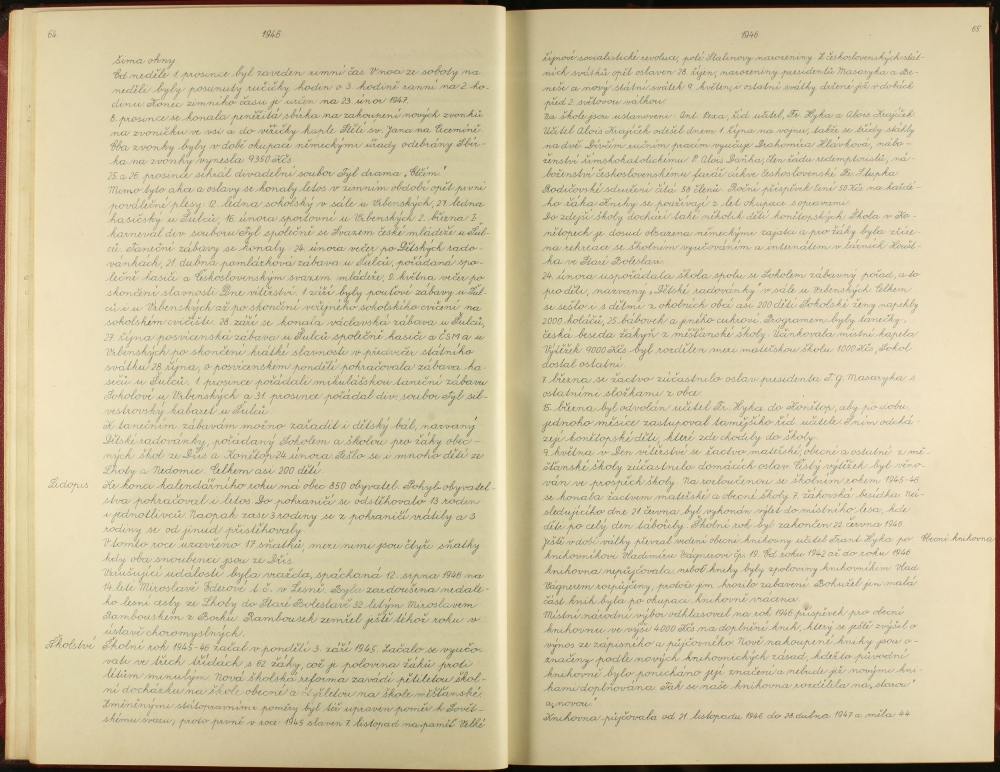 64
1946
šima ohny.
Od neděle 1. prosince byl zaveden zimní čas. V noci ze soboty na
neděli byly posunuty ručičky hodin o 3. hodině ranní na 2. ho-
dinu. Konec zimního času je určen na 23. únor 1947.
8. prosince se konala peněžitá sbírka na zakoupení nových zvonků
na zvoničku ve vsi a do věžičky kaple Stětí sv. Jana na
Oba zvonky byly v době okupace německými úřady odebrány. Sbír-
ka na zvonky vynesla 9350 Kčs.
25. a 26. prosince sehrál divadelní soubor Tyl drama
Mimo tyto akce a oslavy se konaly letos v zimním období opět první
poválečné plesy: 12. ledna sokolský v sále u Vrbenských, 27. ledna
hasičský u Šulců, 16. února sportovní u Vrbenských, 2. března I.
karneval div. souboru Tyl společně se Svazem české mládeže u Šul-
ců. Taneční zábavy se konaly: 24. února večer po Dětských rado-
vánkách, 21. dubna pomlázková zábava u Šulců, pořádaná spo-
lečně hasiči a Československým svazem mládeže, 9. května večer po
skončení slavnosti Dne vítězství, 1. září byly pouťové zábavy u Šul-
ců i u Vrbenských až po skončení veřejného sokolského cvičení na
sokolském cvičišti. 28. září se konala václavská zábava u Šulců,
27. října posvícenská zábava u Šulců společně hasiči a ČSM a u
Vrbenských po skončení krátké slavnosti v předvečer státního
svátku 28. října, o posvícenském pondělí pohračovala zábava ha-
sičů u Šulců. 1. prosince pořádali mikulášskou taneční zábavu
Sokolové u Vrbenských a 31. prosince pořádal div. soubor Tyl sil-
vestrovský kabaret u Šulců.
K tanečním zábavám možno zařadit i dětský bál, nazvaný
Dětské radovánky, pořádaný Sokolem a školou pro žáky obec-
ných škol ze Dřís a Konětop 24. února. Sešlo se i mnoho dětí ze
Lhoty a Nedomic. Celkem asi 200 dětí.
Lidopis
Ke konci kalendářního roku má obec 850 obyvatel. Pohyb obyvatel-
stva pokračoval i letos. Do pohraničí se odstěhovalo 13 rodin
i jednotlivců. Naopak zase 3 rodiny se z pohraničí vrátily a 3
rodiny se od jinud přistěhovaly.
V tomto roce uzavřeno 17 sňatků, mezi nimi jsou čtyři sňatky
kdy oba snoubenci jsou ze Dřís.
Vzrušující událostí byla vražda, spáchaná 12. srpna 1946 na
14 leté Miroslavě Ederové t. č. na Lesní. Byla zardoušena nedale-
ko lesní cesty ze Lhoty do Staré Boleslavě 32 letým Miroslavem
Rambouskem z Borku. Rambousek zemřel ještě téhož roku v
ústavě choromyslných.
Školství
Školní rok 1945-46 začal v pondělí 3. září 1945. Začalo se vyučo-
vati ve třech třídách s 62 žáky, což je polovina žáků proti
létům minulým. Nová školská reforma zavádí pětiletou škol-
ní docházku na škole obecné a čtyřletou na škole měšťanské.
Změněnými státoprávními poměry byl též upraven poměr k Sovět-
skému svazu, proto prvně v roce 1945 slaven 7. listopad na paměť Velké
1946
65
říjnové socialistické revoluce, poté Stalinovy narozeniny. Z československých stát-
ních svátků opět oslaven 28. říjen, narozeniny presidentů Masaryka a Be-
neše a nový státní svátek 9. květen, i ostatní svátky, držené již v dobách
před 2. světovou válkou.
Na škole jsou ustanoveni: Ant. Rexa, říd. učitel, Fr. Hyka a Alois Krajíček.
Učitel Alois Krajíček odešel dnem 1. října na vojnu, takže se třídy stáhly
na dvě. Dívčím ručním pracím vyučuje Drahomíra Hlávková, nábo-
ženství římskokatolickému P. Alois Daňka, člen řádu redemptoristů, ná-
boženství československému farář církve československé Fr. Stupka.
Rodičovské sdružení čítá 58 členů. Roční příspěvek činí 50 Kčs na každé-
ho žáka. Knihy se používají z let okupace s opravami.
Do zdejší školy dochází také několik dětí konětopských. Škola v Ko-
nětopech je dosud obsazena německými zajatci a pro žáky byla zříze-
na rekreace se školním vyučováním a internátem v lázních Houšť-
ka ve Staré Boleslavi.
24. února uspořádala škola spolu se Sokolem zábavný pořad, a to
pro děti, nazvaný „Dětské radovánky" v sále u Vrbenských. Celkem
se sešlo i s dětmi z okolních obcí asi 200 dětí. Sokolské ženy napekly
2000 koláčů, 25 bábovek a jiného cukroví. Programem byly tanečky,
česká beseda žákyň z měšťanské školy. Účinkovala místní kapela.
Výtěžek 9000 Kčs byl rozdělen mezi mateřskou školu 1000 Kčs, Sokol
dostal ostatní.
7. března se žactvo zúčastnilo oslav presidenta T. G. Masaryka s
ostatními složkami z obce.
15. března byl odvolán učitel Fr. Hyka do Konětop, aby po dobu
jednoho měsíce zastupoval tamějšího říd. učitele. S ním odchá-
zejí konětopské děti, které zde chodily do školy.
9. května v Den vítězství se žactvo mateřské, obecné a ostatní z mě-
šťanské školy zúčastnilo domácích oslav. Čistý výtěžek byl věno-
ván ve prospěch školy. Na rozloučenou se školním rokem 1945-46
se konala žactvem mateřské a obecné školy 7. žákovská besídka. Ná-
sledujícího dne 21. června byl vykonán výlet do místního lesa, kde
děti po celý den tábořily. Školní rok byl zakončen 22. června 1946.
Obecní knihovna
Ještě v době války převzal vedení obecní knihovny učitel Frant. Hyka po
knihovníkovi Vladimíru Vágnerovi čp. 19. Od roku 1942 až do roku 1946
knihovna nepůjčovala, neboť knihy byly zpoloviny knihovníkem Vlad.
Vágnerem rozpůjčeny, protože jim hrozilo zabavení. Bohužel jen malá
část knih byla po okupaci knihovně vrácena.
Místní národní výbor odhlasoval na rok 1946 příspěvek pro obecní
knihovnu ve výši 4000 Kčs na doplnění knih, který se ještě zvýšil o
výnos ze zápisného a půjčovného. Nově nakoupené knihy jsou o-
značeny podle nových knihovnických zásad, kdežto původní
knihovně bylo ponecháno její značení a nebude již novými kni-
hami doplňována. Tak se naše knihovna rozdělila na „starou"
a „novou".
Knihovna půjčovala od 21. listopadu 1946 do 28. dubna 1947 a měla 44